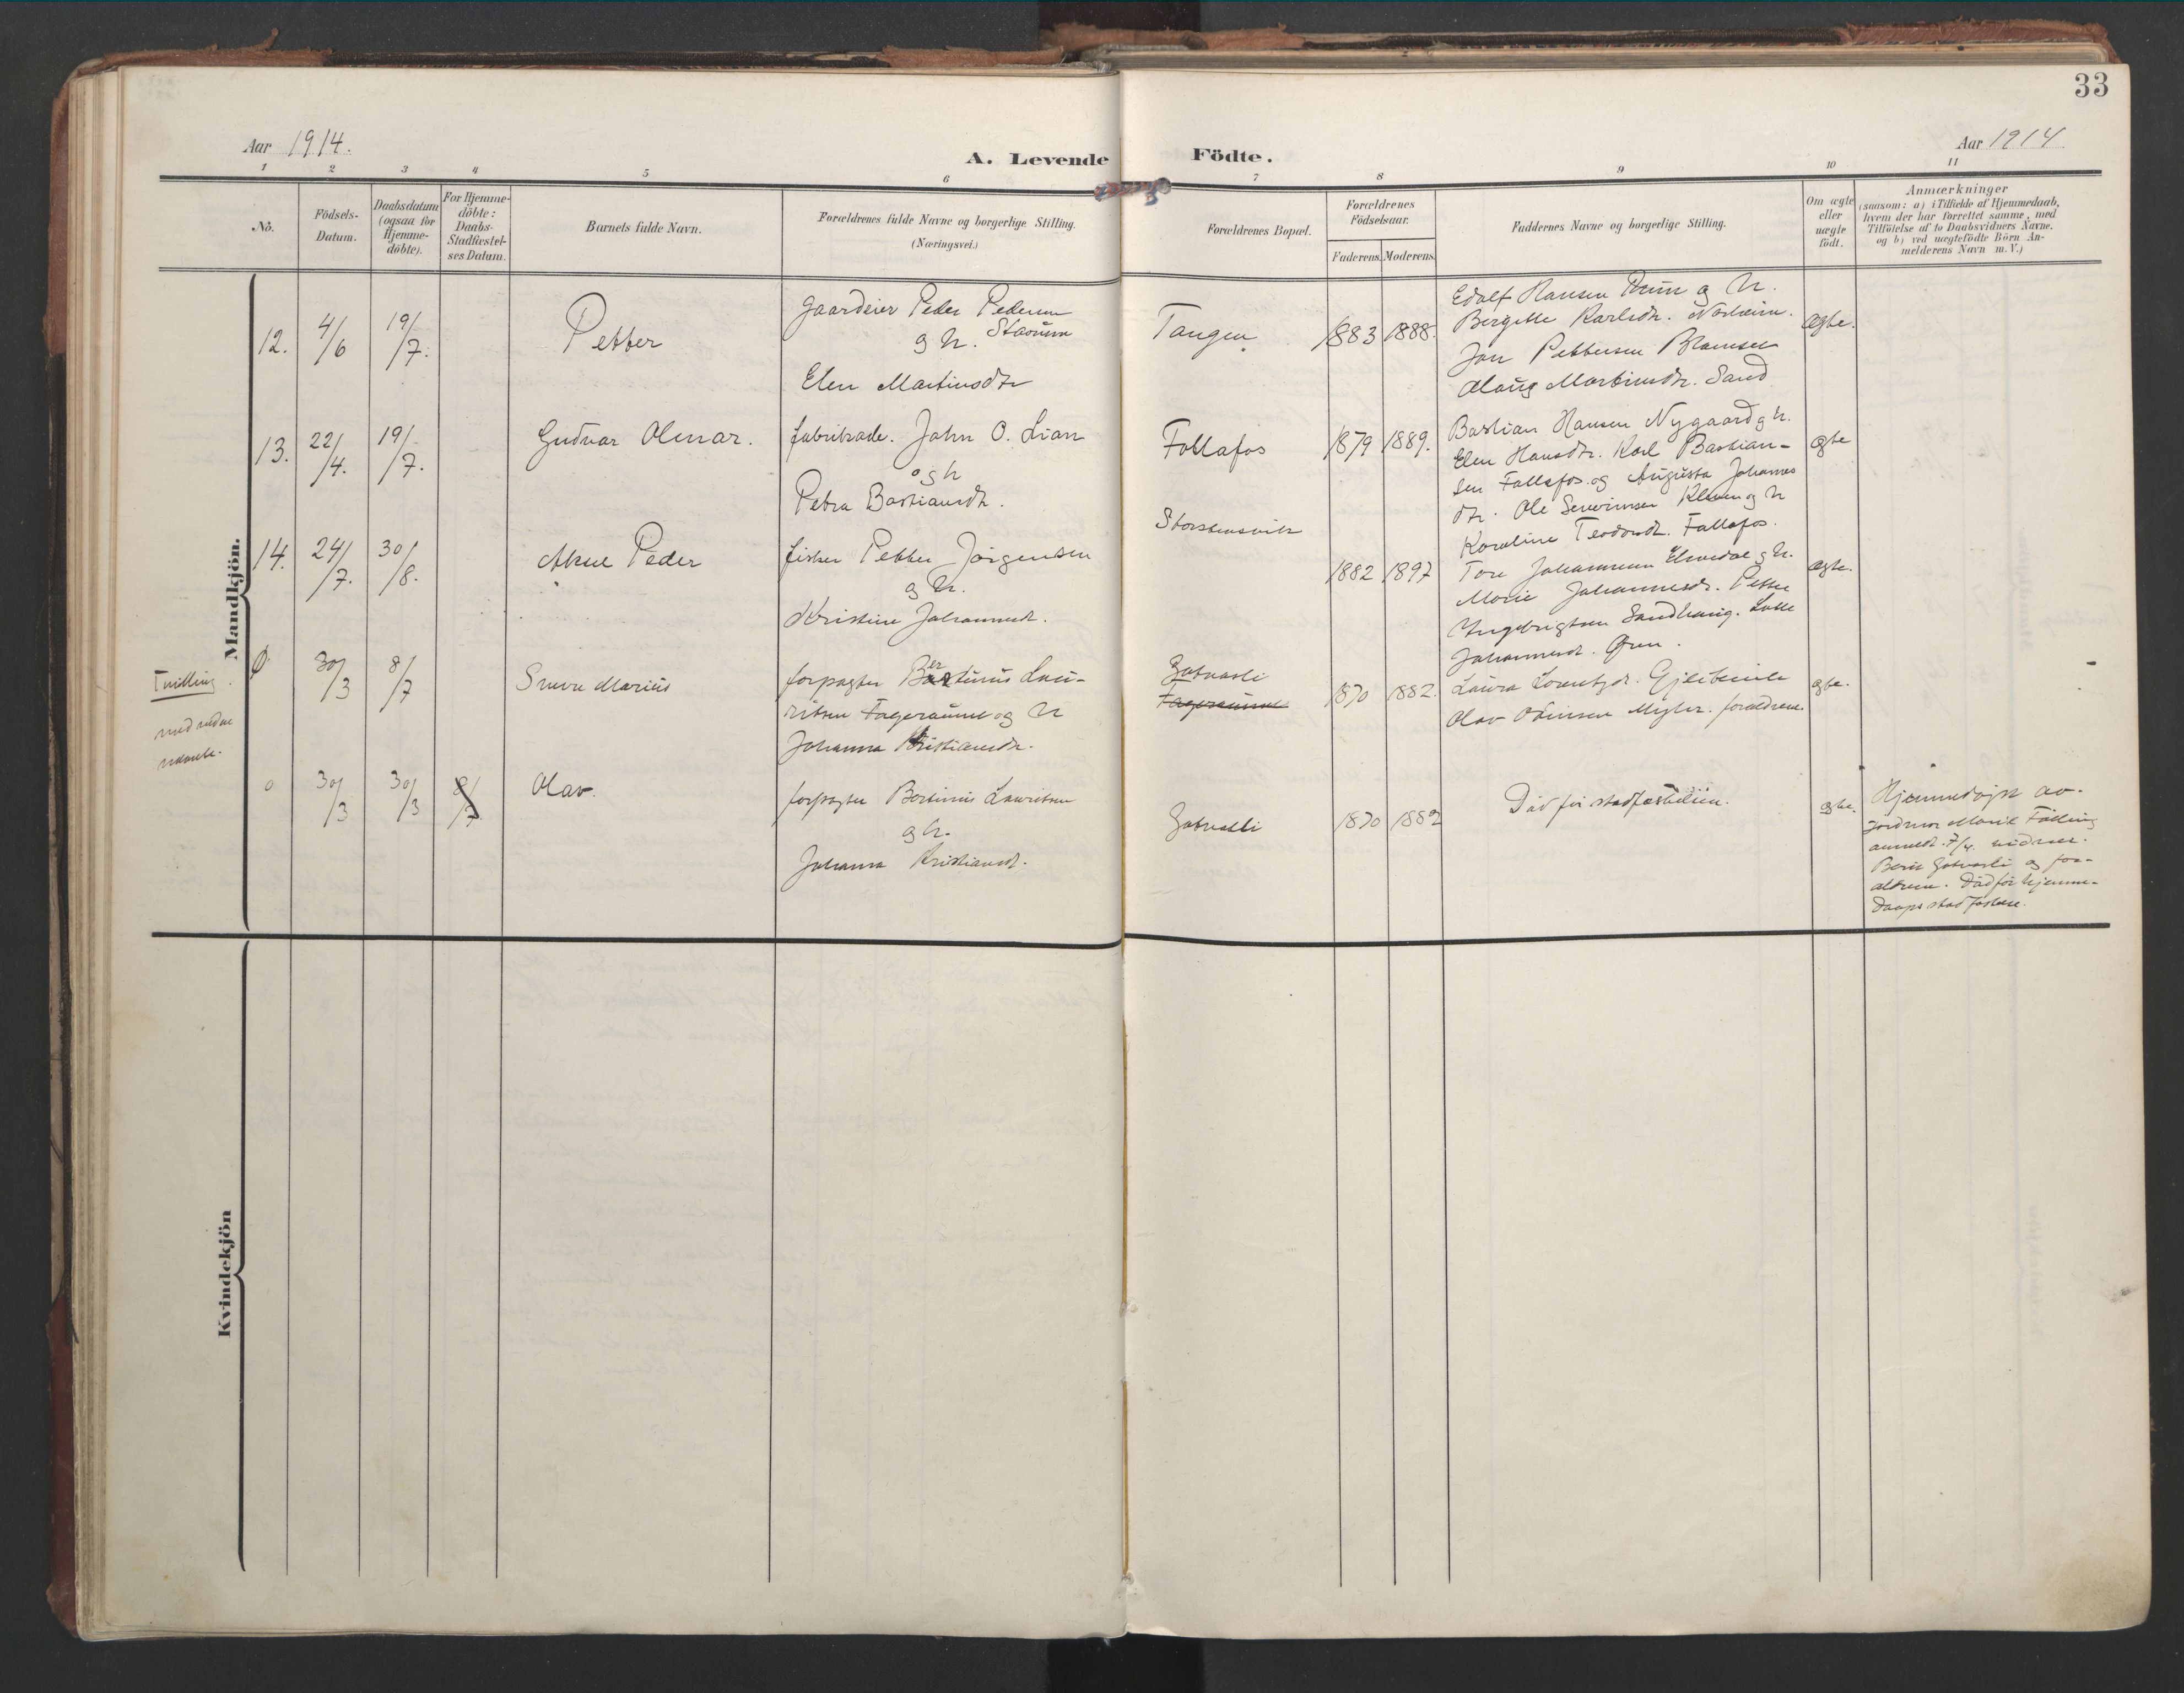 33
Aar 1914.
A. Levende Födte.
Aar 1914
1 2 3 4 5 6 7 8 9 10 11
No.
Födsels-
Datum.
Daabsdatum
(ogsaa for
Hjemme-
döbte).
For Hjemme-
döbte:
Daabs-
Stadfæstel-
ses Datum.
Barnets fulde Navn.
Forældrenes fulde Navne og borgerlige Stilling.
(Næringsvei.)
Forældrenes Bopæl.
Forældrenes
Födselsaar.
Faderens. Moderens.
Faddernes Navne og borgerlige Stilling.
Om ægte
eller
uægte
födt.
Anmærkninger
(saasom: a) i Tilfælde af Hjemmedaab,
hvem der har forrettet samme, med
Tilföielse af to Daabsvidners Navne,
og b) ved uægtefödte Börn An-
melderens Navn m. V.)
Mandkjön.
12.
4/6
19/7.
Petter
Gaardeier Peder Pedersen
og h. Staoune
Elen Martinsdtr
Tangen
1883 1888.
Edolf Hansen og h.
Bergitte Karlsdtr.
Jon Pettersen
Olaug Martinsdtr. Sand
ægte.
13.
22/4.
19/7.
Gudvar Olmar.
fabrikarb. John O. Lian
og h
Petra Bastiansdtr.
Follafos
1879 1889.
Bastian Hansen Nygaard og h.
Elen Hansdtr. Karl Bastian-
sen Follafos og Augusta Johannes
dtr. Ole Severinsen Kleven og h
Karoline Teodorsdtr. Follafos.
ægte
14.
24/7.
30/8.
Peder
fisker Petter Jörgensen
og h.
Kristine Johannesdtr.
Storstensvik
1882 1897
Tore Johannesen Elverdal og h.
Marie Johannesdtr. Petter
Ingebrigtsen Sandhaug. Lotte
Johannesdtr. Øren.
ægte.
Tvilling
med nedenf
0
30/3
8/7
Sverre Marius
forpagter Bertinus Lau-
ritsen Fageraunet og h
Johanna Kristiansdtr.
Gotvasli
Fageraunet
1870 1882.
Laura Lorentzdtr.
Olav Odinsen forældrene.
ægte.
0
30/3
30/3
8/7
Olav.
forpagter Bertinus Lauritsen
og h.
Johanna Kristiansdtr.
Gotvasli
1870 1882
Död för stadfæstelsen.
ægte.
Hjemmedöpt av
jordmor Marie Følling
anmeldt 7/4.
Gotvasli og for-
ældrene. Död för hjemme-
daaps stadfæstelse.
Kvindekjön